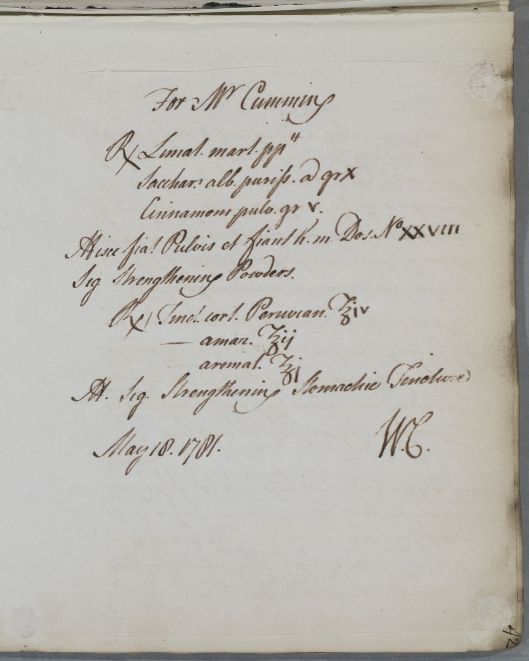 For Mr Cumming
℞ Limat. mart. ppti
Sacchar. alb. puriss. a̅ grx
Cinnamom. pulv. gr v.
Misce fiat Pulvis et fiant h. m. Dos. No XXVIII
Sig Strengthening Powders.
℞ Tinct. cort. Peruvian. ℥iv
— amar. ℥ij
— aromat. ℥j
M. Sig. Strengthening Stomachic Tincture
May 18. 1781. W.C.
42